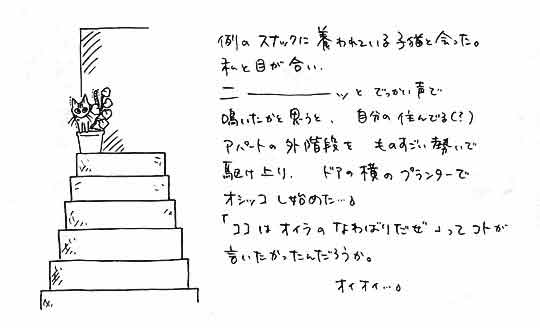 例のスナックに養われている子猫と会った。
私と目が合い、
ニ――――ッとでっかい声で
鳴いたかと思うと、自分の住んでる(?)
アパートの外階段をものすごい勢いで
駆け上り、ドアの横のプランターで
オシッコし始めた…。
「ココはオイラのなわばりだぜ」ってコトが
言いたかったんだろうか。
オイオイ…。